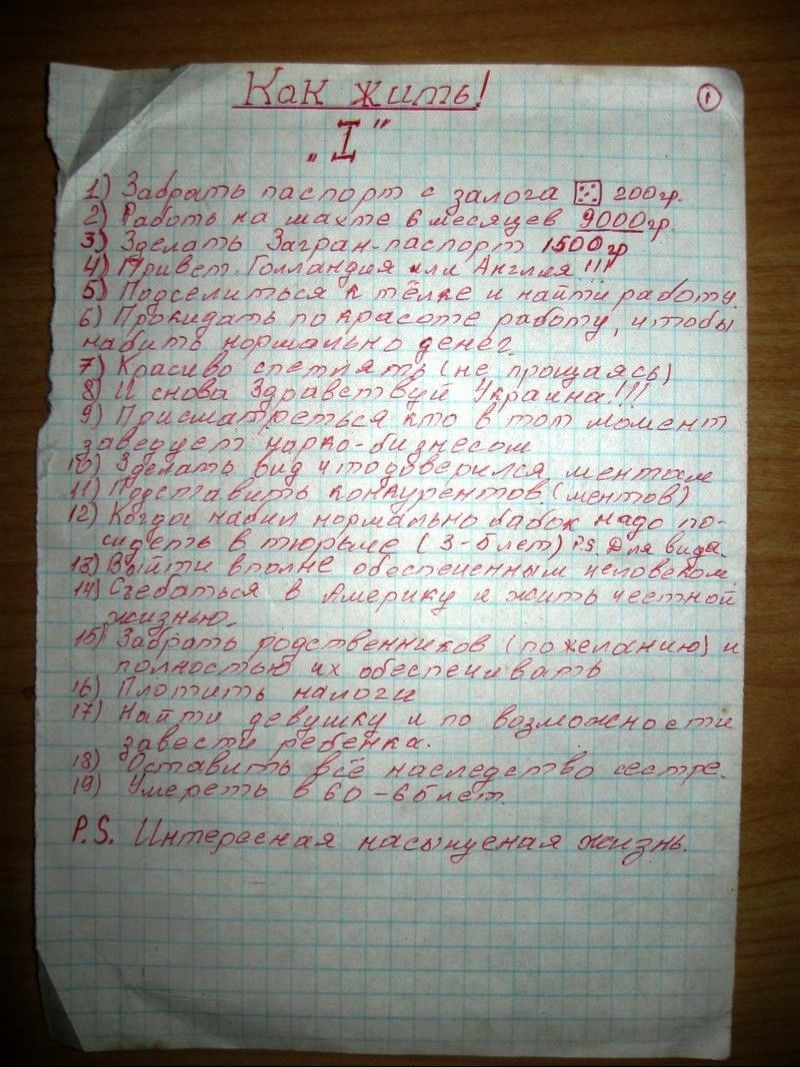 Как жить!
1
„I”
1) Забрать паспорт с залога 200гр.
2) Работь на шахте 6 месяцев 9000гр.
3) Зделать Загран-паспорт 1500гр
4) Привет Голландия или Англия !!!
5) Подселиться к тёлке и найти работу.
6) Прокидать по красоте работу, чтобы
набить нормально денег.
7) Красиво спетлять (не прощаясь)
8) И снова Здравствуй Украина!!!
9) Присматреться кто в тот момент
заведует нарко-бизнесом
10) Зделать вид что доверился ментам
11) Подставить конкурентов. (ментов)
12) Когда набил нормально бабок надо по-
сидеть в тюрьме (3-5лет) P.S. Для вида.
13) Выйти вполне обеспеченным человеком
14) Съебаться в Америку и жить честной
жизнью.
15) Забрать родственников (по желанию) и
полностью их обеспечивать
16) Плотить налоги
17) Найти девушку и по возможности
завести ребенка.
18) Оставить всё наследство сестре.
19) Умереть в 60-65лет.
P.S. Интересная насыщеная жизнь.